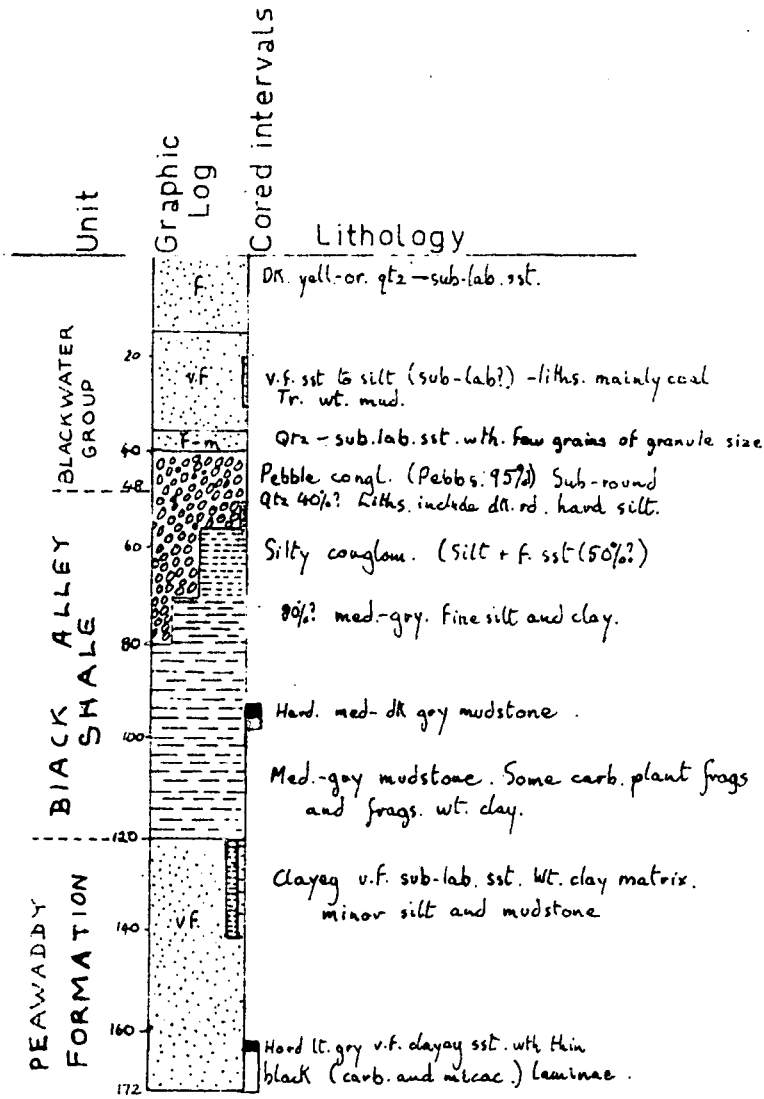 Unit
Graphic
Log
Cored intervals
Lithology
BLACKWATER
GROUP
BLACK ALLEY
SHALE
PEAWADDY
FORMATION
20
40
48
60
80
100
120
140
160
172
f
v.f
f-m
v.f.
Dk. yell-or. qtz - sub-lab. sst.
v.f. sst to silt (sub-lab?) - liths. mainly coal
Tr. wt. mud.
Qtz - sub.lab.sst. wth. few grains of granule size
Pebble congl. (Pebbs. 95%) Sub-round
Qtz 40%? Liths. include dk. rd. hard silt.
Silty conglom. (Silt + f. sst (50%?)
80%? med.-gry. Fine silt and clay.
Hard. med-dk grey mudstone.
Med.-gry mudstone. Some carb. plant frags
and frags. wt. clay.
Clayey v.f. sub-lab. sst. Wt. clay matrix.
minor silt and mudstone
Hard lt. gry v.f. clayay sst. wth thin
black (carb. and micac.) laminae.